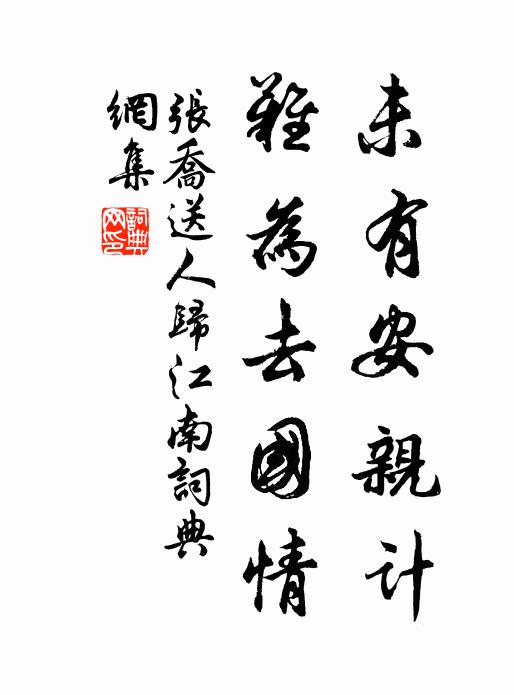 未有安親計
難為去國情
張喬送人歸江南詞典
網集
詞典
网印